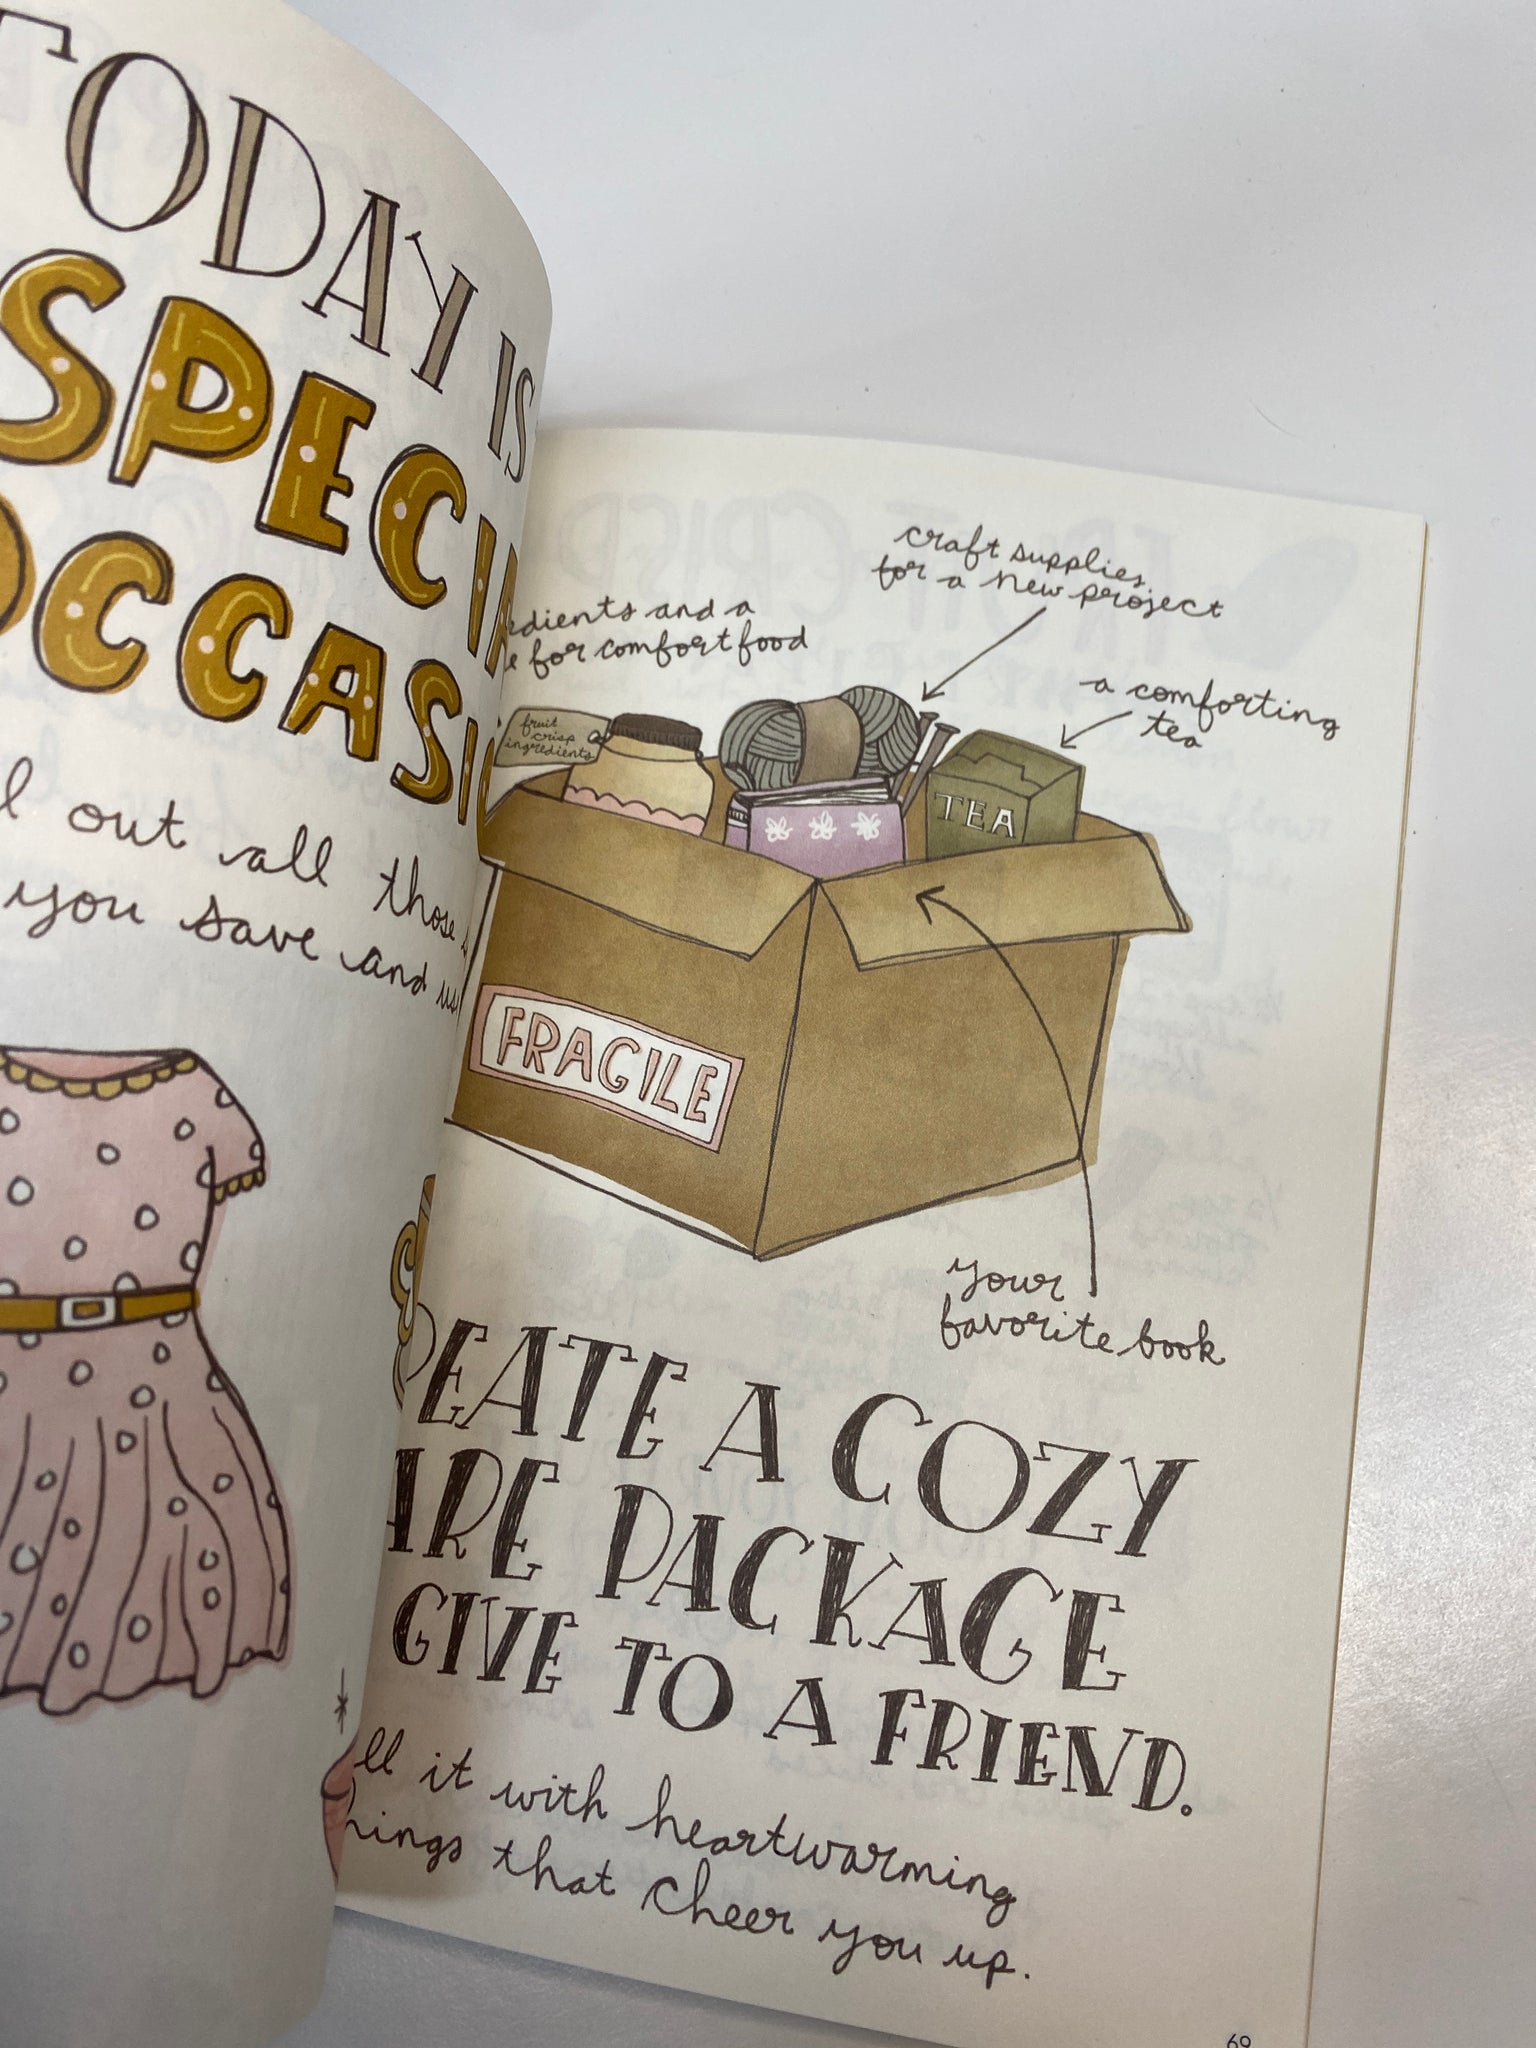 TODAY IS
SPECIAL
OCCASI
out all those
you save and us
craft supplies
for a new project
and a
for comfort food
a comforting
tea
fruit
crisp
ingredients
TEA
FRAGILE
your
favorite book
EATE A COZY
ARE PACKAGE
GIVE TO A FRIEND.
ll it with heartwarming
hings that cheer you up.
69